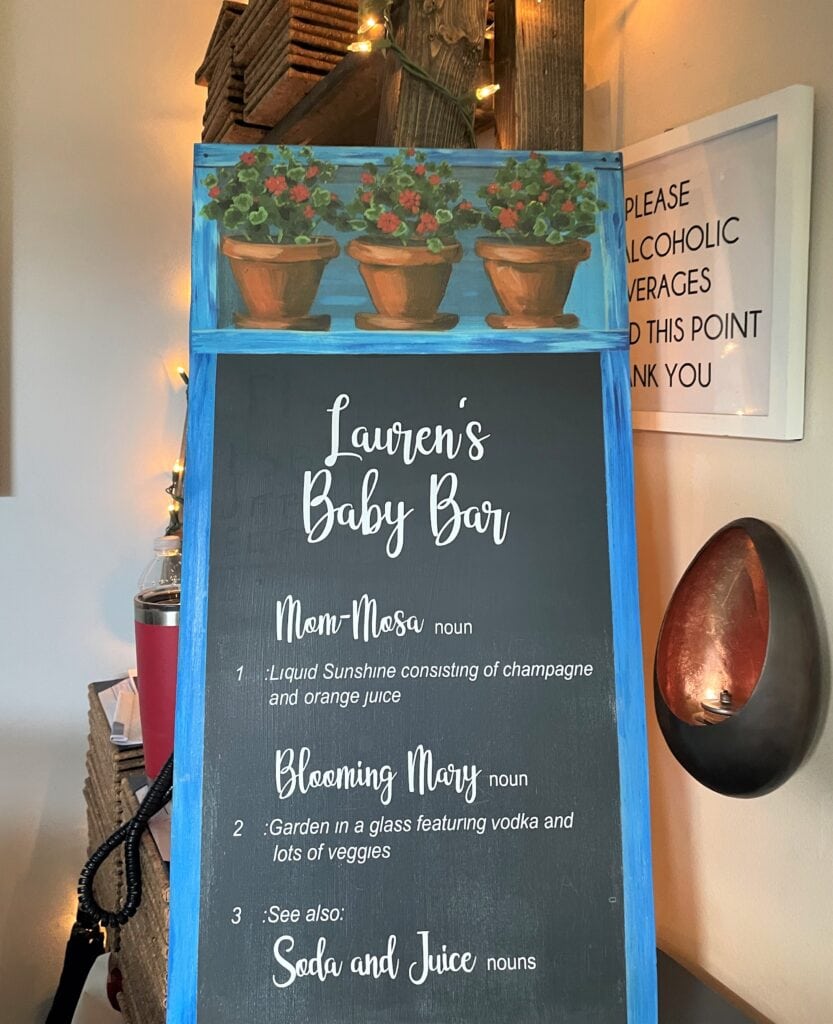 Lauren's
Baby Bar
Mom-Mosa noun
1 :Liquid Sunshine consisting of champagne
and orange juice
Blooming Mary noun
2 :Garden in a glass featuring vodka and
lots of veggies
3 :See also:
Soda and Juice nouns
PLEASE
THIS POINT
YOU